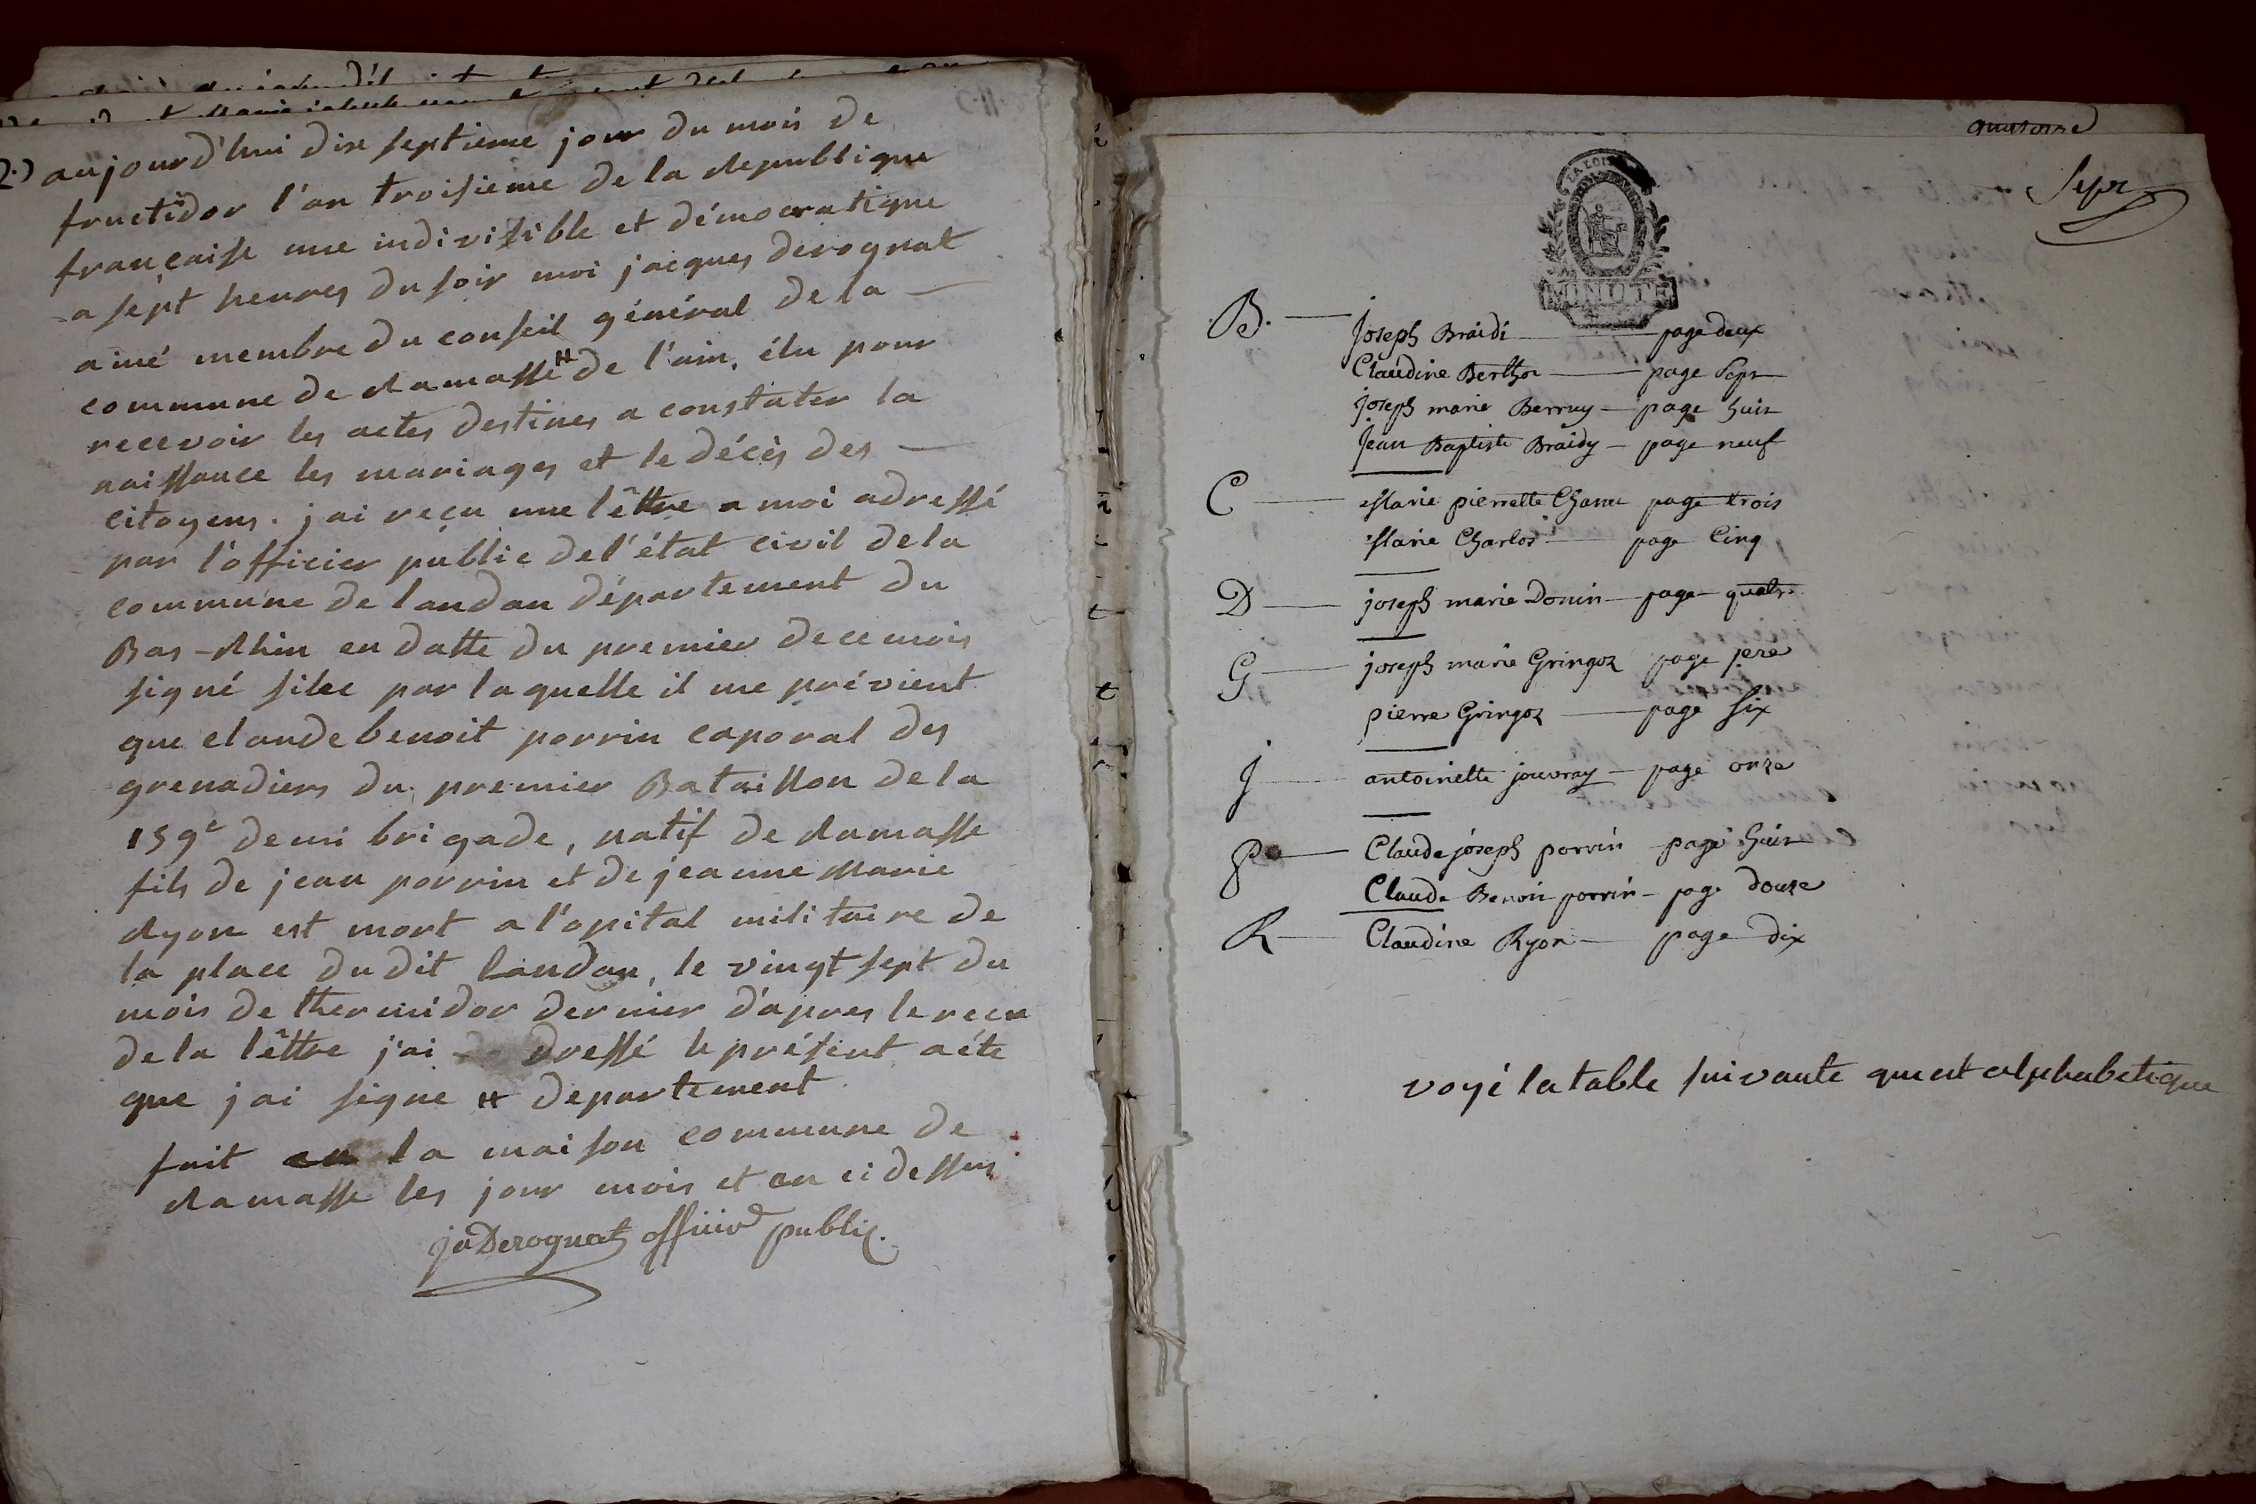 2.) aujourd'hui dix septieme jour du mois de
fructidor l'an troisieme de la republique
française une indivisible et démocratique
a sept heures du soir moi jacques derognat
ainé membre du conseil général de la —
commune de Ramasse # de l'ain, élu pour
recevoir les actes destines a constater la
naissance les mariages et le décès des —
citoyens. j'ai reçu une lêttre a moi adressé
par l'officier public de l'état civil de la
commune de landau département du
Bas-Rhin en datte du premier de ce mois
signé par laquelle il me prévient
que claude benoit porrin caporal des
grenadiers du premier Bataillon de la
159e demi brigade, natif de Ramasse
fils de jean porrin et de jeanne Marie
Ryon est mort a l'opital militaire de
la place du dit Landau, le vingt sept du
mois de thermidor dernier d'apres le reçu
de la lêttre j'ai dressé le présent acte
que j'ai signe # departement
fait en la maison commune de
Ramasse les jour mois et an ci dessus
ja Derognat officier public.
quatorze
Sept
LA LOI
MINUTE
B. — joseph Braidi — page deux
Claudine Berthot — page Sept
joseph marie Berruy — page huit
Jean Baptiste Braidy — page neuf
C — Marie pierrette Chanu page trois
Marie Charlot — page Cinq
D — joseph marie Donin — page quatre
G — joseph marie Gringoz page 1ere
pierre Gringoz — page Six
J — antoinette jouvray — page onze
P — Claude joseph porrin page huit
Claude Benoit porrin — page douze
R — Claudine Ryon — page dix
voyé la table suivante qui est alphabetique